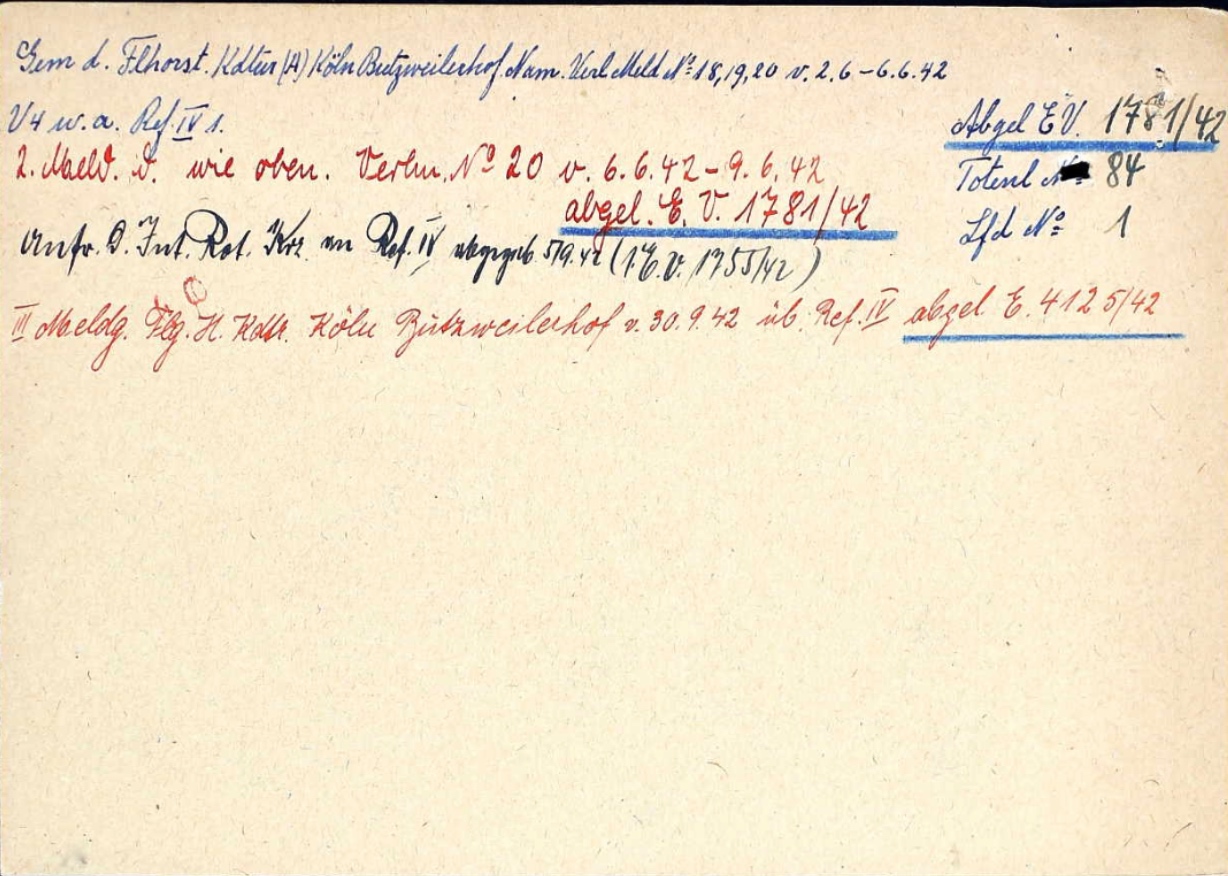 Gem d. Flhorst. Kdtur (A) Köln Butzweilerhof. Nam. Verl Meld No 18, 19, 20 v. 2.6 – 6.6.42
V4 w. a. Ref IV 1.
Abgel E.V. 1781/42
2. Meld. d. wie oben. Verlm. No 20 v. 6.6.42 – 9.6.42
Totenl No 84
abgel. E. V. 1781/42
Lfd No 1
Anfr. d. Int. Rot. Krz. an Ref. IV abgegeb. 5/9.42 (1.E.V. 1755/42)
III Meldg. Flg. H. Kdtr. Köln Butzweilerhof v. 30.9.42 üb. Ref. IV abgel. E. 4125/42